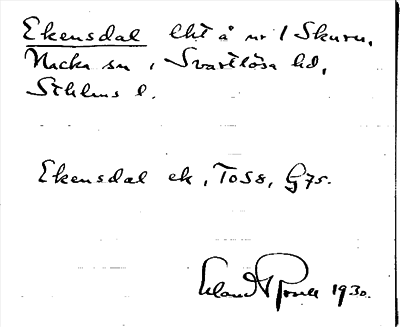 Ekensdal lht å nr 1 Skuru,
Nacka sn, Svartlösa hd,
Sthlms l.
Ekensdal ek, To58, G75.
Erland Rosell 1930.